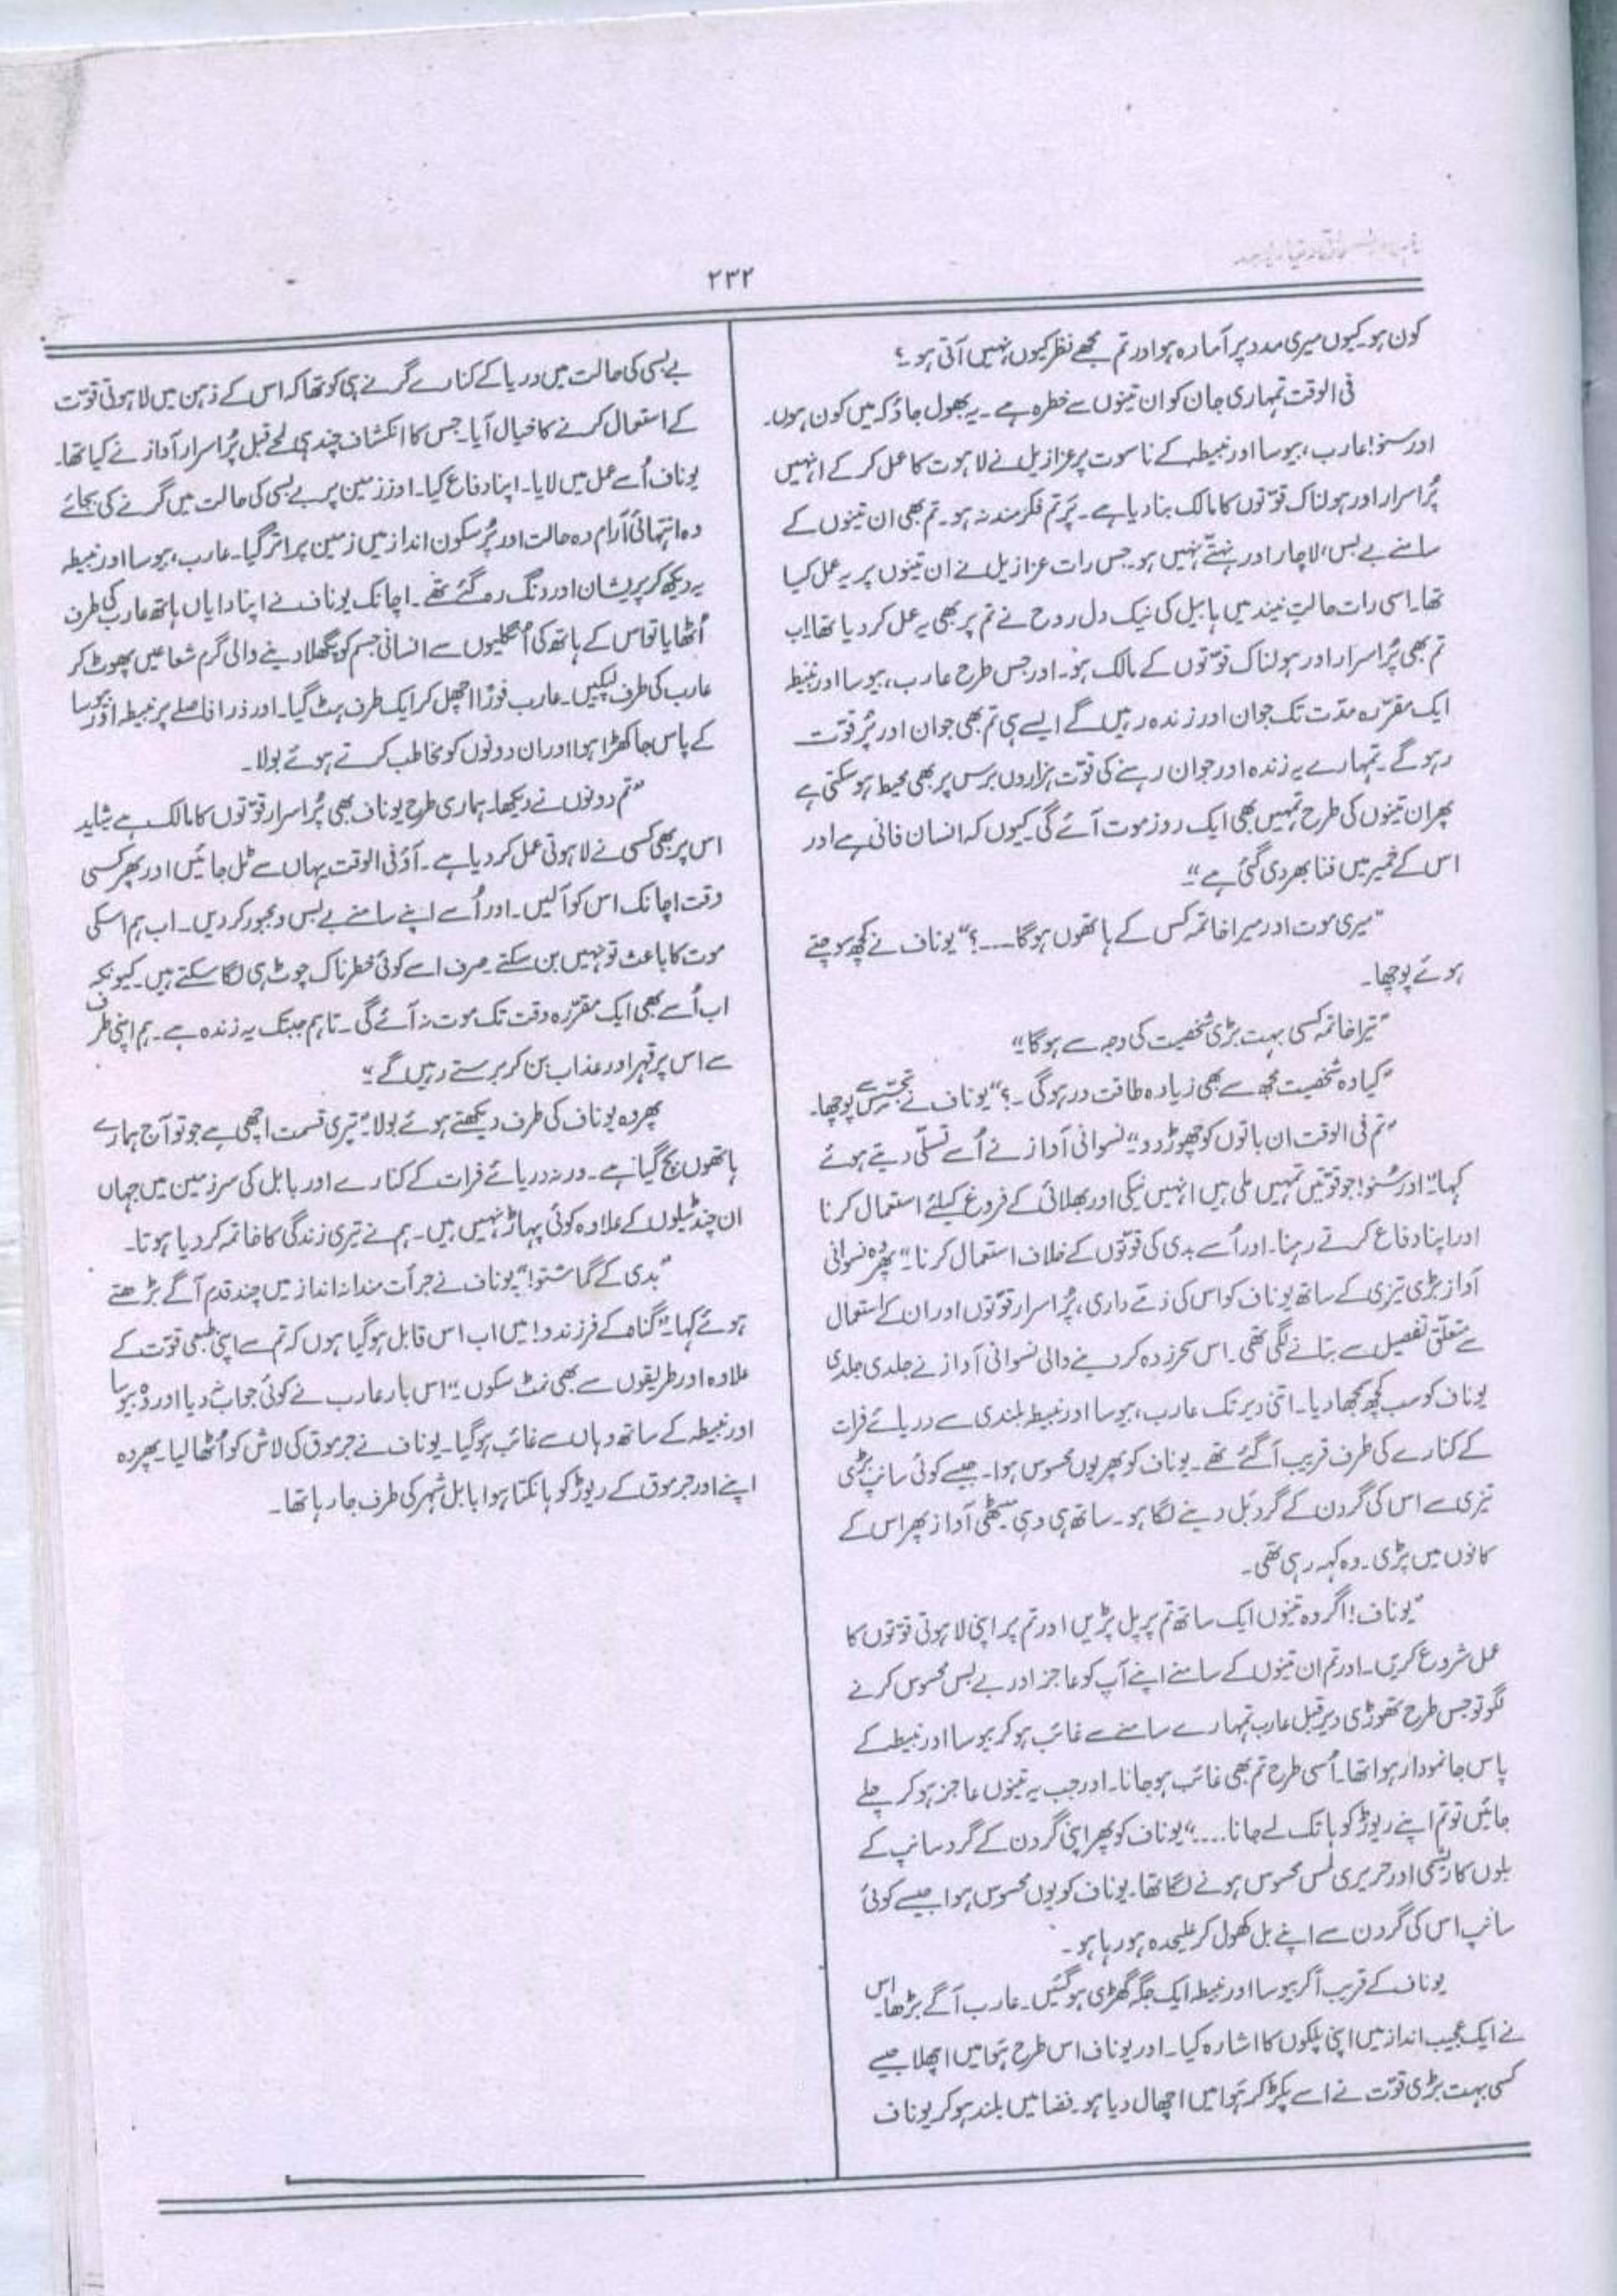 ۲۳۲
کون ہو۔ کیوں میری مدد پر آمادہ ہو اور تم مجھے نظر کیوں نہیں آتی ہو۔؟
فی الوقت تمہاری جان کو ان تینوں سے خطرہ ہے۔ یہ بھول جاؤ کہ میں کون ہوں۔
اور سنو! عارب، بیوسا اور نبیطہ کے ناسوت پر عزازیل نے لاہوت کا عمل کر کے انہیں
پُراسرار اور ہولناک قوّتوں کا مالک بنا دیا ہے۔ پَر تم فکرمند نہ ہو۔ تم بھی ان تینوں کے
سامنے بے بس، لاچار اور نہتّے نہیں ہو۔ جس رات عزازیل نے ان تینوں پر یہ عمل کیا
تھا۔ اسی رات حالتِ نیند میں ہابیل کی نیک دل روح نے تم پر بھی یہ عمل کر دیا تھا اب
تم بھی پُراسرار اور ہولناک قوّتوں کے مالک ہو۔ اور جس طرح عارب، بیوسا اور نبیطہ
ایک مقرّرہ مدّت تک جوان اور زندہ رہیں گے ایسے ہی تم بھی جوان اور پُر قوّت
رہو گے۔ تمہارے یہ زندہ اور جوان رہنے کی قوّت ہزاروں برس پر بھی محیط ہو سکتی ہے
پھر ان تینوں کی طرح تمہیں بھی ایک روز موت آئے گی کیوں کہ انسان فانی ہے اور
اس کے خمیر میں فنا بھر دی گئی ہے“
”میری موت اور میرا خاتمہ کس کے ہاتھوں ہو گا۔۔۔؟“ یوناف نے کچھ سوچتے
ہوئے پوچھا۔
”تیرا خاتمہ کسی بہت بڑی شخصیت کی وجہ سے ہو گا“
”کیا وہ شخصیت مجھ سے بھی زیادہ طاقت ور ہو گی۔؟“ یوناف نے تجسّس سے پوچھا۔
”تم فی الوقت ان باتوں کو چھوڑ دو“ نسوانی آواز نے اُسے تسلّی دیتے ہوئے
کہا۔ ”اور سُنو! جو قوّتیں تمہیں ملی ہیں انہیں نیکی اور بھلائی کے فروغ کیلئے استعمال کرنا
اور اپنا دفاع کرتے رہنا۔ اور اُسے بدی کی قوّتوں کے خلاف استعمال کرنا“ پھر وہ نسوانی
آواز بڑی تیزی کے ساتھ یوناف کو اس کی ذمّے داری، پُراسرار قوّتوں اور ان کے استعمال
سے متعلّق تفصیل سے بتانے لگی تھی۔ اس سحر زدہ کر دینے والی نسوانی آواز نے جلدی جلدی
یوناف کو سب کچھ سمجھا دیا۔ اتنی دیر تک عارب، بیوسا اور نبیطہ بلندی سے دریائے فرات
کے کنارے کی طرف قریب آ گئے تھے۔ یوناف کو پھر یوں محسوس ہوا۔ جیسے کوئی سانپ بڑی
تیزی سے اس کی گردن کے گرد بَل دینے لگا ہو۔ ساتھ ہی وہی میٹھی آواز پھر اس کے
کانوں میں پڑی۔ وہ کہہ رہی تھی۔
”یوناف! اگر وہ تینوں ایک ساتھ تم پر پل پڑیں اور تم پر اپنی لاہوتی قوّتوں کا
عمل شروع کریں۔ اور تم ان تینوں کے سامنے اپنے آپ کو عاجز اور بے بس محسوس کرنے
لگو تو جس طرح تھوڑی دیر قبل عارب تمہارے سامنے سے غائب ہو کر بیوسا اور نبیطہ کے
پاس جا نمودار ہوا تھا۔ اُسی طرح تم بھی غائب ہو جانا۔ اور جب یہ تینوں عاجز ہو کر چلے
جائیں تو تم اپنے ریوڑ کو ہانک لے جانا....“ یوناف کو پھر اپنی گردن کے گرد سانپ کے
بلوں کا ریشمی اور حریری لمس محسوس ہونے لگا تھا۔ یوناف کو یوں محسوس ہوا جیسے کوئی
سانپ اس کی گردن سے اپنے بل کھول کر علیحدہ ہو رہا ہو۔
یوناف کے قریب آ کر بیوسا اور نبیطہ ایک جگہ کھڑی ہو گئیں۔ عارب آگے بڑھا۔ اس
نے ایک عجیب انداز میں اپنی پلکوں کا اشارہ کیا۔ اور یوناف اس طرح ہَوا میں اچھلا جیسے
کسی بہت بڑی قوّت نے اسے پکڑ کر ہَوا میں اچھال دیا ہو۔ فضا میں بلند ہو کر یوناف
بے بسی کی حالت میں دریا کے کنارے گرنے ہی کو تھا کہ اس کے ذہن میں لاہوتی قوّت
کے استعمال کرنے کا خیال آیا۔ جس کا انکشاف چند ہی لمحے قبل پُراسرار آواز نے کیا تھا۔
یوناف اُسے عمل میں لایا۔ اپنا دفاع کیا۔ اور زمین پر بے بسی کی حالت میں گرنے کی بجائے
وہ انتہائی آرام دہ حالت اور پُرسکون انداز میں زمین پر اتر گیا۔ عارب، بیوسا اور نبیطہ
یہ دیکھ کر پریشان اور دنگ رہ گئے تھے۔ اچانک یوناف نے اپنا دایاں ہاتھ عارب کی طرف
اُٹھایا تو اس کے ہاتھ کی اُنگلیوں سے انسانی جسم کو پگھلا دینے والی گرم شعاعیں پھوٹ کر
عارب کی طرف لپکیں۔ عارب فوراً اچھل کر ایک طرف ہٹ گیا۔ اور ذرا فاصلے پر نبیطہ اور بیوسا
کے پاس جا کھڑا ہوا اور ان دونوں کو مخاطب کرتے ہوئے بولا۔
”تم دونوں نے دیکھا۔ ہماری طرح یوناف بھی پُراسرار قوّتوں کا مالک ہے شاید
اس پر بھی کسی نے لاہوتی عمل کر دیا ہے۔ آؤ فی الوقت یہاں سے ٹل جائیں اور پھر کسی
وقت اچانک اس کو آ لیں۔ اور اُسے اپنے سامنے بے بس و مجبور کر دیں۔ اب ہم اسکی
موت کا باعث تو نہیں بن سکتے۔ صرف اسے کوئی خطرناک چوٹ ہی لگا سکتے ہیں۔ کیونکہ
اب اُسے بھی ایک مقرّرہ وقت تک موت نہ آئے گی۔ تاہم جبتک یہ زندہ ہے۔ ہم اپنی طرف
سے اس پر قہر اور عذاب بن کر برستے رہیں گے“
پھر وہ یوناف کی طرف دیکھتے ہوئے بولا۔ ”تیری قسمت اچھی ہے جو تو آج ہمارے
ہاتھوں بچ گیا ہے۔ ورنہ دریائے فرات کے کنارے اور بابل کی سرزمین میں جہاں
ان چند ٹیلوں کے علاوہ کوئی پہاڑ نہیں ہیں۔ ہم نے تیری زندگی کا خاتمہ کر دیا ہوتا۔
”بدی کے گماشتو!“ یوناف نے جرأت مندانہ انداز میں چند قدم آگے بڑھتے
ہوئے کہا۔ ”گناہ کے فرزندو! میں اب اس قابل ہو گیا ہوں کہ تم سے اپنی طبعی قوّت کے
علاوہ اور طریقوں سے بھی نمٹ سکوں“ اس بار عارب نے کوئی جواب نہ دیا اور وہ بیوسا
اور نبیطہ کے ساتھ وہاں سے غائب ہو گیا۔ یوناف نے جرموق کی لاش کو اُٹھا لیا۔ پھر وہ
اپنے اور جرموق کے ریوڑ کو ہانکتا ہوا بابل شہر کی طرف جا رہا تھا۔